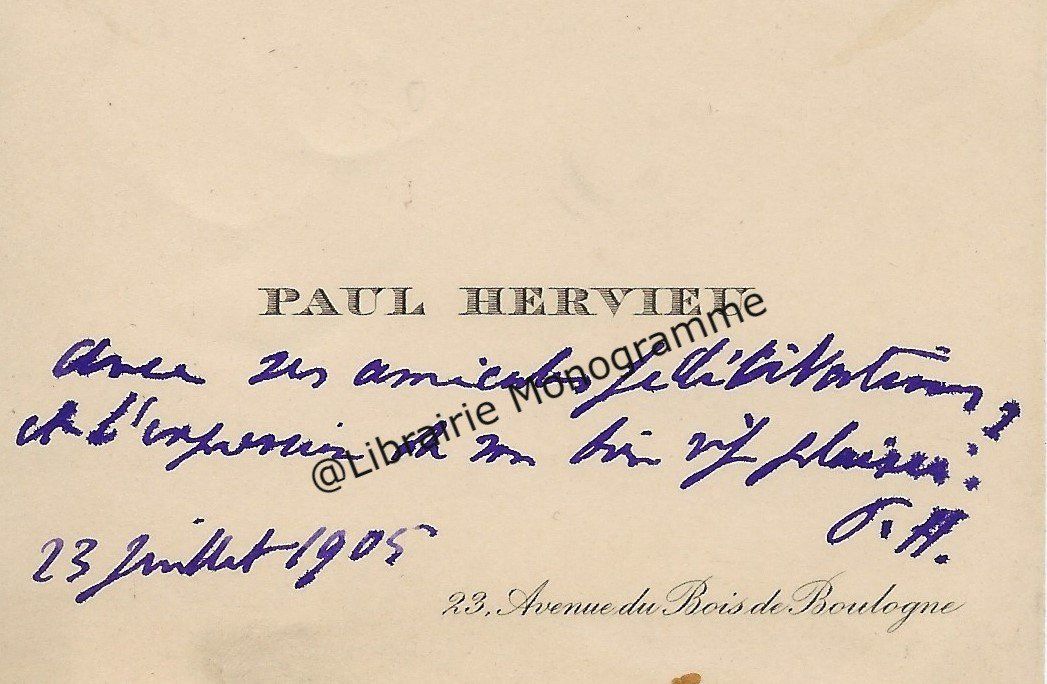 PAUL HERVIEU
avec ses amicales félicitations,
et l'expression de son bien vif plaisir.
P. H.
23 juillet 1905
23, Avenue du Bois de Boulogne
@Librairie Monogramme